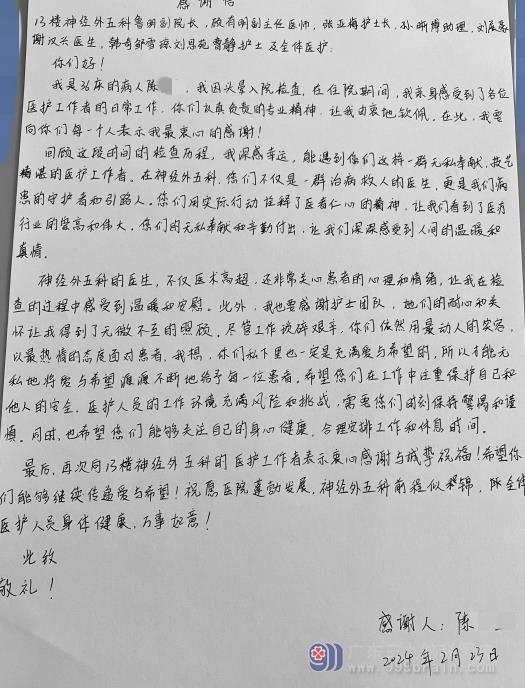 感谢信
13楼神经外五科鲁明副院长，段有明副主任医师，张亚梅护士长，孙晰博助理，刘
谢汉兴医生，韩奇邹雪琼刘思苑曹静护士及全体医护：
你们好！
我是31床的病人陈 ，我因头晕入院检查，在住院期间，我亲身感受到了各位
医护工作者的日常工作，你们认真负责的专业精神，让我由衷地钦佩。在此，我要
向你们每一个人表示我最衷心的感谢！
回顾这段时间的检查历程，我深感幸运，能遇到你们这样一群无私奉献、技艺
精湛的医护工作者。在神经外五科，您们不仅是一群治病救人的医生，更是我们病
患的守护者和引路人。您们用实际行动诠释了医者仁心的精神，让我们看到了医疗
行业的崇高和伟大。您们的无私奉献和辛勤付出，让我们深深感受到人间的温暖和
真情。
神经外五科的医生，不仅医术高超，还非常关心患者的心理和情绪，让我在检
查的过程中感受到温暖和安慰。此外，我也要感谢护士团队，她们的耐心和关
怀让我得到了无微不至的照顾。尽管工作琐碎艰辛，你们依然用最动人的笑容，
以最热情的态度面对患者，我想，你们私下里也一定是充满爱与希望的，所以才能无
私地将爱与希望源源不断地给予每一位患者，希望您们在工作中注重保护自己和
他人的安全，医护人员的工作环境充满风险和挑战，需要您们时刻保持警惕和谨
慎。同时，也希望您们能够关注自己的身心健康，合理安排工作和休息时间。
最后，再次向13楼神经外五科的医护工作者表示衷心感谢与诚挚祝福！希望你
们能够继续传递爱与希望！祝愿医院蓬勃发展，神经外五科前程似锦，所全体
医护人员身体健康，万事如意！
此致
敬礼！
感谢人：陈
2024年2月23日